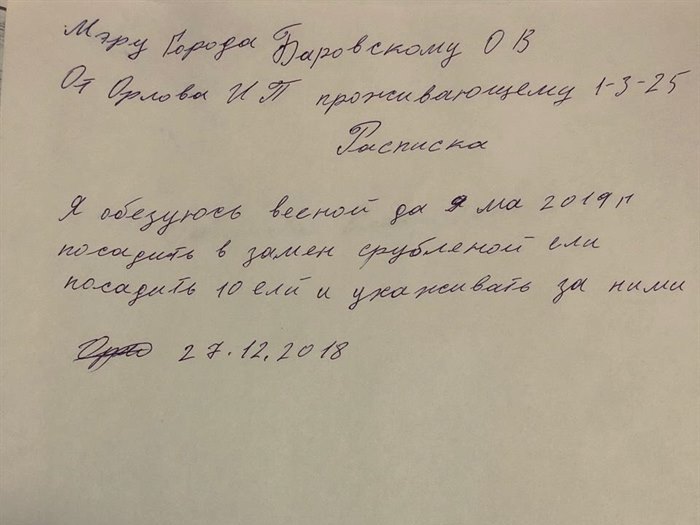 Мэру Города Баровскому О В
От Орлова И П проживающему 1-3-25
Расписка
Я обезуюсь весной да 9 ма 2019 г
посадить в замен срубленой ели
посадить 10 елй и ухаживать за ними
27.12.2018